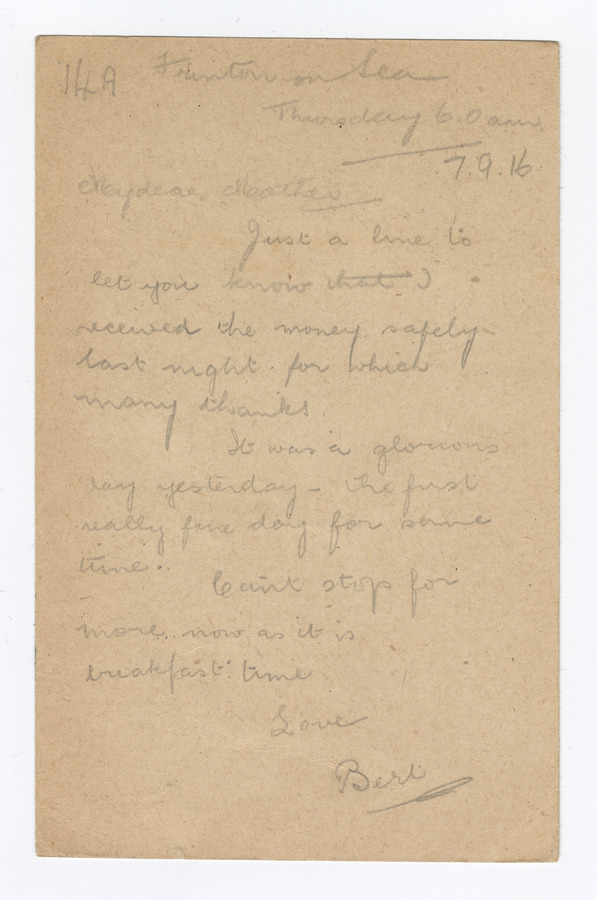 14A Frinton on Sea
Thursday 6.0 am
7.9.16
My dear Mother
Just a line to
let you know that I
received the money safely
last night for which
many thanks.
It was a glorious
day yesterday - the first
really fine day for some
time.
Can't stop for
more now as it is
breakfast time
Love
Bert